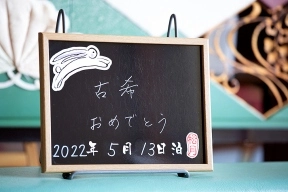 古希
おめでとう
2022年 5月 13日泊